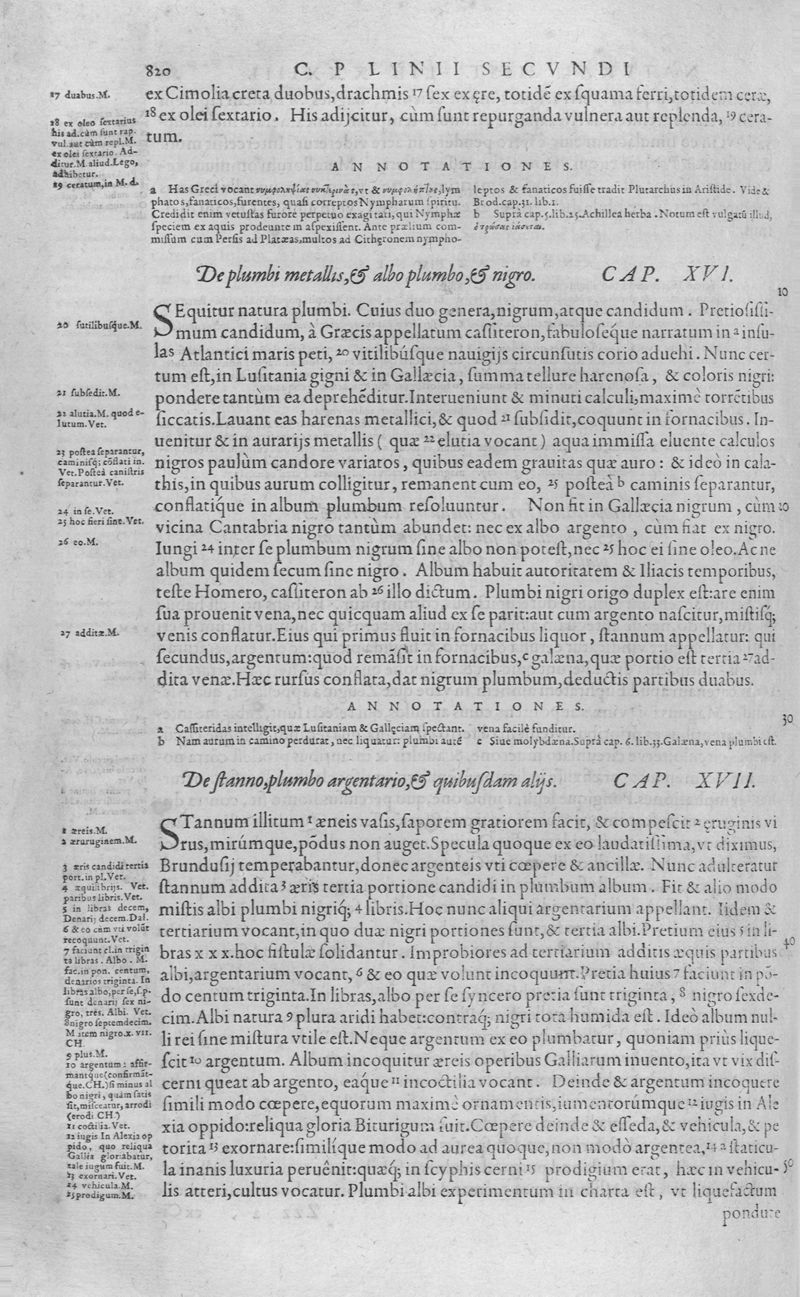 820
C. PLINII SECVNDI
ex Cimolia creta duobus, drachmis 17 sex ex ęre, totidē ex squama ferri, totidem ceræ,
18 ex olei sextario. His adijcitur, cùm sunt repurganda vulnera aut replenda, 19 cera-
tum.
17 duabus.M.
18 ex oleo sextarius
his ad.cùm sunt rap.
vul.aut cùm repl.M.
ex olei sextario. Ad-
ditur.M aliud.Lego,
adhibetur.
19 ceratum,in M. d.
ANNOTATIONES.
a Has Græci vocant & lym
phatos, fanaticos, furentes, quasi correptos Nympharum spiritu.
Credidit enim vetustas furore perpetuo exagitari, qui Nymphæ
speciem ex aquis prodeuntem aspexissent. Ante prælium com-
missum cum Persis ad Platæas, multos ad Citheronem nympho-
leptos & fanaticos fuisse tradit Plutarchus in Aristide. Vide &
Brod.cap.31. lib.1.
b Suprà cap.5.lib.25.Achillea herba. Notum est vulgatū illud,
De plumbi metallis, & albo plumbo, & nigro. CAP. XVI.
10
SEquitur natura plumbi. Cuius duo genera, nigrum, atque candidum. Pretiosissi-
mum candidum, à Græcis appellatum cassiteron, fabuloséque narratum in a insu-
las Atlantici maris peti, 20 vitilibúsque nauigijs circunsutis corio aduehi. Nunc cer-
tum est, in Lusitania gigni & in Gallæcia, summa tellure harenosa, & coloris nigri:
pondere tantùm ea deprehēditur. Interueniunt & minuti calculi, maximè torrētibus
siccatis. Lauant eas harenas metallici, & quod 21 subsidit, coquunt in fornacibus. In-
uenitur & in aurarijs metallis ( quæ 22 elutia vocant ) aqua immissa eluente calculos
nigros paulùm candore variatos, quibus eadem grauitas quæ auro: & ideò in cala-
this, in quibus aurum colligitur, remanent cum eo, 23 posteà b caminis separantur,
conflatíque in album plumbum resoluuntur. Non fit in Gallæcia nigrum, cùm 20
vicina Cantabria nigro tantùm abundet: nec ex albo argento, cùm fiat ex nigro.
Iungi 24 inter se plumbum nigrum sine albo non potest, nec 25 hoc ei sine oleo. Ac ne
album quidem secum sine nigro. Album habuit autoritatem & Iliacis temporibus,
teste Homero, cassiteron ab 26 illo dictum. Plumbi nigri origo duplex est: are enim
sua prouenit vena, nec quicquam aliud ex se parit: aut cum argento nascitur, mistisq;
venis conflatur. Eius qui primus fluit in fornacibus liquor, stannum appellatur: qui
secundus, argentum: quod remāsit in fornacibus, c galæna, quæ portio est tertia 27 ad-
dita venæ. Hæc rursus conflata, dat nigrum plumbum, deductis partibus duabus.
20 sutilibusque.M.
21 subsedit.M.
22 alutia.M. quod e-
lutum.Vet.
23 postea separantur,
caminisq; cōflati in.
Vet.Posteà canistris
separantur.Vet.
24 in se.Vet.
25 hoc fieri sine.Vet.
26 eo.M.
27 additæ.M.
ANNOTATIONES.
30
a Cassiteridas intelligit, quæ Lusitaniam & Gallęciam spectant.
b Nam aurum in camino perdurat, nec liquatur: plumbi autē
vena facilè funditur.
c Siue molybdæna.Suprà cap. 6. lib.33.Galæna, vena plumbi est.
De stanno, plumbo argentario, & quibusdam alijs. CAP. XVII.
STannum illitum 1 æneis vasis, saporem gratiorem facit, & compescit 2 ęruginis vi
rus, mirúmque, pōdus non auget. Specula quoque ex eo laudatissima, vt diximus,
Brundusij temperabantur, donec argenteis vti cœpere & ancillæ. Nunc adulteratur
stannum addita 3 æris tertia portione candidi in plumbum album. Fit & alio modo
mistis albi plumbi nigriq; 4 libris. Hoc nunc aliqui argentarium appellant. Iidem &
tertiarium vocant, in quo duæ nigri portiones sunt, & tertia albi. Pretium eius 5 in li-
bras xxx. hoc fistulæ solidantur. Improbiores ad tertiarium additis æquis partibus 40
albi, argentarium vocant, 6 & eo quæ volunt incoquunt. Pretia huius 7 faciunt in pō-
do centum triginta. In libras, albo per se syncero pretia sunt triginta, 8 nigro sexde-
cim. Albi natura 9 plura aridi habet: contraq; nigri tota humida est. Ideò album nul-
li rei sine mistura vtile est. Neque argentum ex eo plumbatur, quoniam priùs lique-
scit 10 argentum. Album incoquitur æreis operibus Galliarum inuento, ita vt vix dis-
cerni queat ab argento, eaque 11 incoctilia vocant. Deinde & argentum incoquere
simili modo cœpere, equorum maximè ornamentis, iumentorúmque 12 iugis in Ale
xia oppido: reliqua gloria Biturigum fuit. Cœpere deinde & esseda, & vehicula, & pe
torita 13 exornare: similíque modo ad aurea quoque, non modò argentea, 14 a staticu-
la inanis luxuria peruênit: quæq; in scyphis cerni 15 prodigium erat, hæc in vehicu- 50
lis atteri, cultus vocatur. Plumbi albi experimentum in charta est, vt liquefactum
pondere
1 æreis.M.
2 æruruginem.M.
3 æris candidi tertia
port.in pl.Vet.
4 æquilibrijs. Vet.
paribus libris.Vet.
5 in libras decem,
Denarij decem.Dal.
6 & eo cùm vti volūt
recoquunt.Vet.
7 faciunt cl.in trigin
ta libras. Albo. M.
fac.in pon. centum,
denarios triginta. In
libras albo,per se,sp.
sunt denarij sex ni-
gro, tres. Albi. Vet.
8 nigro septemdecim.
M item nigro.x. vii.
CH.
9 plus.M.
10 argentum: affir-
mantque(confirmāt-
que.CH.)si minus al
bo nigri, quàm satis
sit,misceatur, arrodi
(erodi CH.)
11 coctilia.Vet.
12 iugis In Alexia op
pido, quo reliqua
Gallia gloriabatur,
tale iugum fuit.M.
13 exornari.Vet.
14 vehicula.M.
15 prodigum.M.